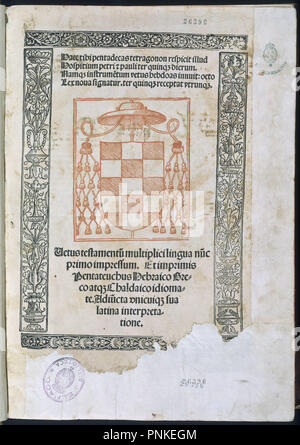 26396
Haec tibi pentadecas tetragonon respicit illud
Hospitium petri ⁊ pauli ter quinqꝫ dierum.
Namqꝫ instrumẽtum vetus hebdoas innuit: octo
Lex noua signatur. ter quinqꝫ receptat vtrunqꝫ.
Uetus testamentũ multiplici lingua nũc
primo impressum. Et imprimis
Pentateuchus Hebraico Gre-
co atqꝫ Chaldaico idioma-
te. Adiũcta vnicuiqꝫ sua
latina interpreta-
tione.
alamy
www.alamy.com - PNKEGM